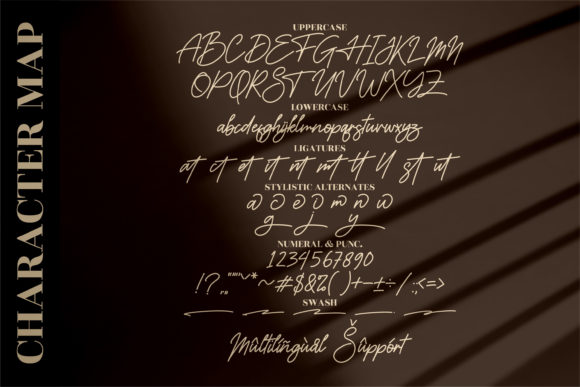 CHARACTER MAP
UPPERCASE
ABCDEFGHIJKLMN
OPQRSTUVWXYZ
LOWERCASE
abcdefghijklmnopqrstuvwxyz
LIGATURES
at ct et it nt mt tt ll st ut
STYLISTIC ALTERNATES
a e o p m n w
g j y
NUMERAL & PUNC.
1234567890
!?,,""''~*~#$&%()+-±÷/:;<=>
SWASH
Mûltilïñgùäl Šûppórt